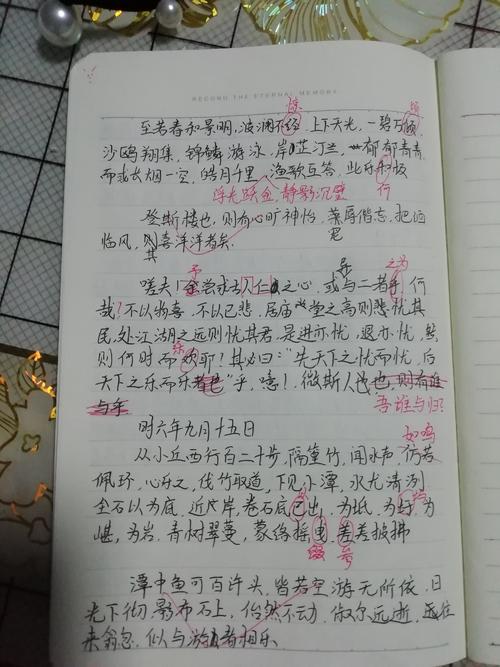 RECORD THE ETERNAL MEMORY
惊
倾
至若春和景明,波澜不经,上下天光,一碧万倾
沙鸥翔集,锦鳞游泳,岸芷汀兰,郁郁青青,
而或长烟一空,皓月千里,渔歌互答,此乐何极
浮光跃金,静影沉璧 何
登斯楼也,则有心旷神怡,宠辱偕忘,把酒
临风,其喜洋洋者矣.
予 异 之为
嗟夫!余尝求古人仁之心,或与二者乎,何
哉?不以物喜,不以己悲,居庙堂之高则忧其
民,处江湖之远则忧其君.是进亦忧,退亦忧,然
乐
则何时而欢耶?其必曰:"先天下之忧而忧,后
天下之乐而乐"乎,噫!微斯人也,则有谁
与乎 吾谁与归?
时六年九月十五日
如鸣
从小丘西行百二十步,隔篁竹,闻水声,仿若
佩环,心乐之,伐竹取道,下见小潭,水尤清冽
全石以为底,近岸,卷石底已出,为坻,为屿为
嵁,为岩.青树翠蔓,蒙络摇曳,差差披拂
缀 参
潭中鱼可百许头,皆若空游无所依,日
光下彻,影布石上,佁然不动,俶尔远逝,往
来翕忽.似与游者相乐